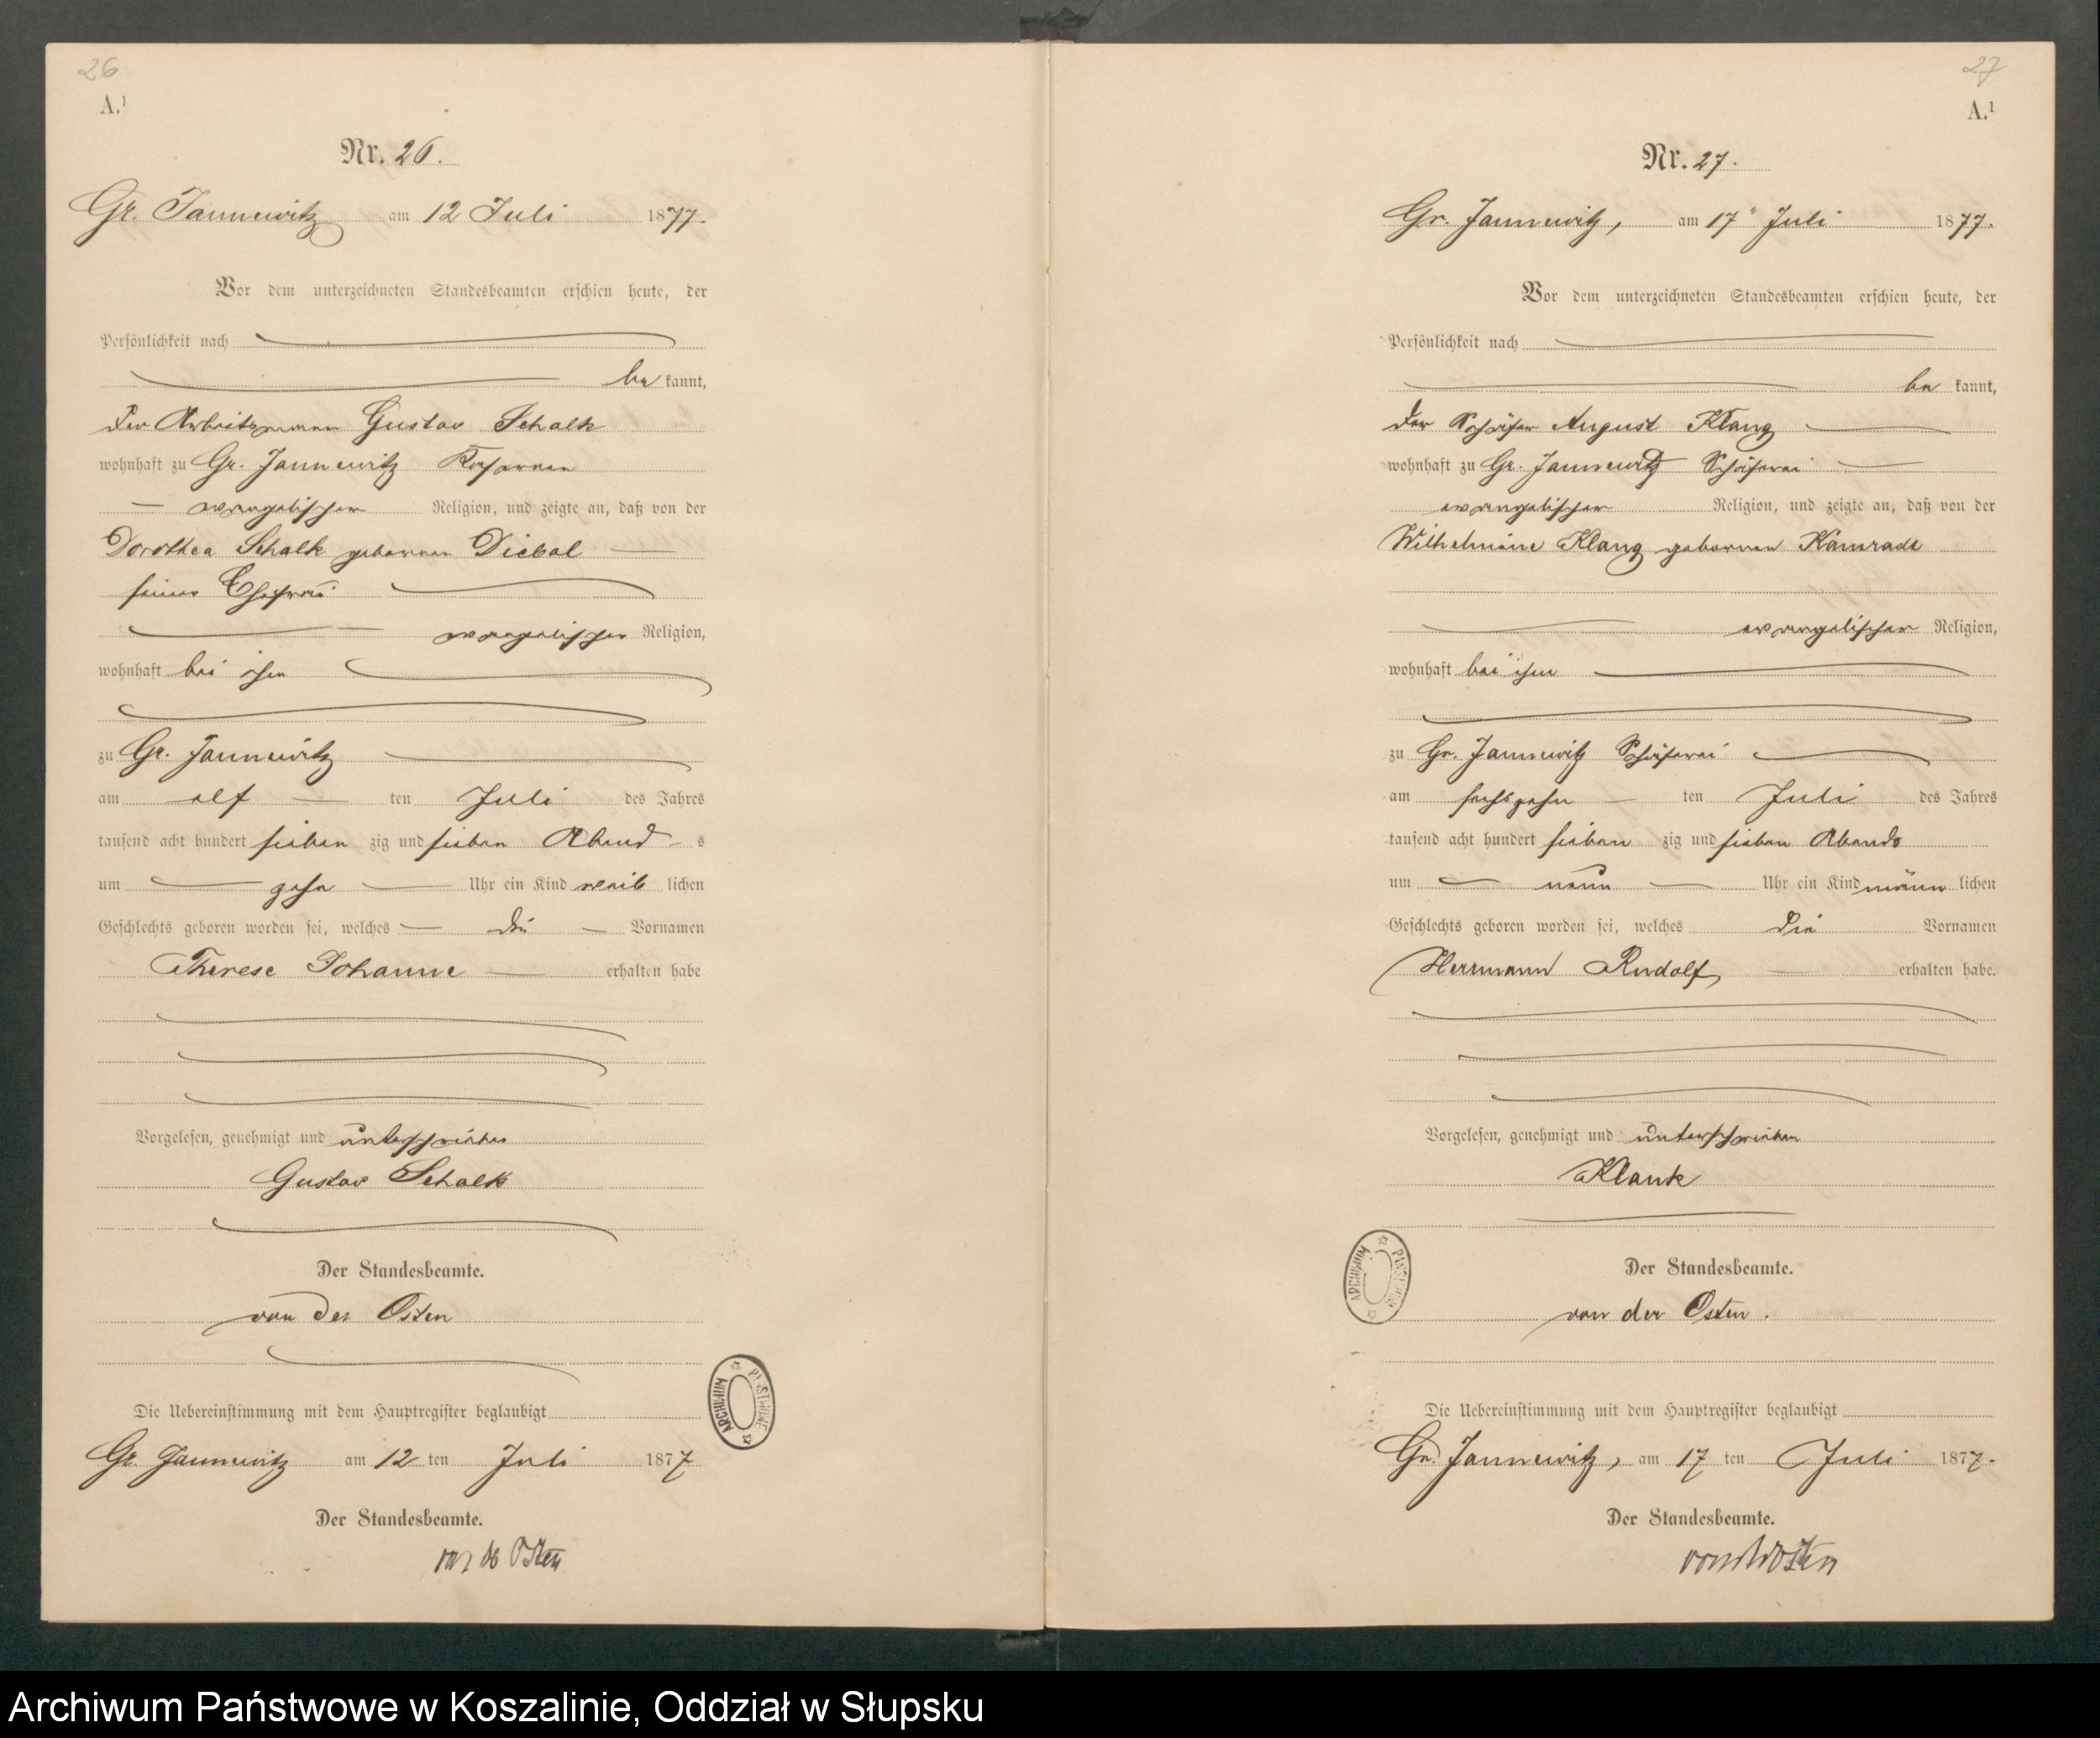 26
A.¹
Nr. 26.
Gr. Jannewitz am 12 Juli 1877.
Vor dem unterzeichneten Standesbeamten erschien heute, der
Persönlichkeit nach
be kannt,
der Arbeitsmann Gustav Schalk
wohnhaft zu Gr. Jannewitz
evangelischer Religion, und zeigte an, daß von der
Dorothea Schalk geborenen Diebal
seiner Ehefrau
evangelischer Religion,
wohnhaft bei ihm
zu Gr. Jannewitz
am elf ten Juli des Jahres
tausend acht hundert sieben zig und sieben Abend s
um zehn Uhr ein Kind weib lichen
Geschlechts geboren worden sei, welches die Vornamen
Therese Johanne erhalten habe
Vorgelesen, genehmigt und unterschrieben
Gustav Schalk
Der Standesbeamte.
von der Osten
Die Uebereinstimmung mit dem Hauptregister beglaubigt
Gr. Jannewitz am 12 ten Juli 1877
Der Standesbeamte.
von der Osten
ARCHIWUM PAŃSTWOWE
27
A.¹
Nr. 27.
Gr. Jannewitz, am 17" Juli 1877.
Vor dem unterzeichneten Standesbeamten erschien heute, der
Persönlichkeit nach
be kannt,
der Schäfer August Klang
wohnhaft zu Gr. Jannewitz Schäferei
evangelischer Religion, und zeigte an, daß von der
Wilhelmine Klang geborenen Kamrade
evangelischer Religion,
wohnhaft bei ihm
zu Gr. Jannewitz Schäferei
am sechszehn ten Juli des Jahres
tausend acht hundert sieben zig und sieben Abends
um neun Uhr ein Kind männ lichen
Geschlechts geboren worden sei, welches die Vornamen
Herrmann Rudolf erhalten habe.
Vorgelesen, genehmigt und unterschrieben
Klank
Der Standesbeamte.
von der Osten.
Die Uebereinstimmung mit dem Hauptregister beglaubigt
Gr. Jannewitz, am 17 ten Juli 1877.
Der Standesbeamte.
von der Osten
ARCHIWUM PAŃSTWOWE
Archiwum Państwowe w Koszalinie, Oddział w Słupsku